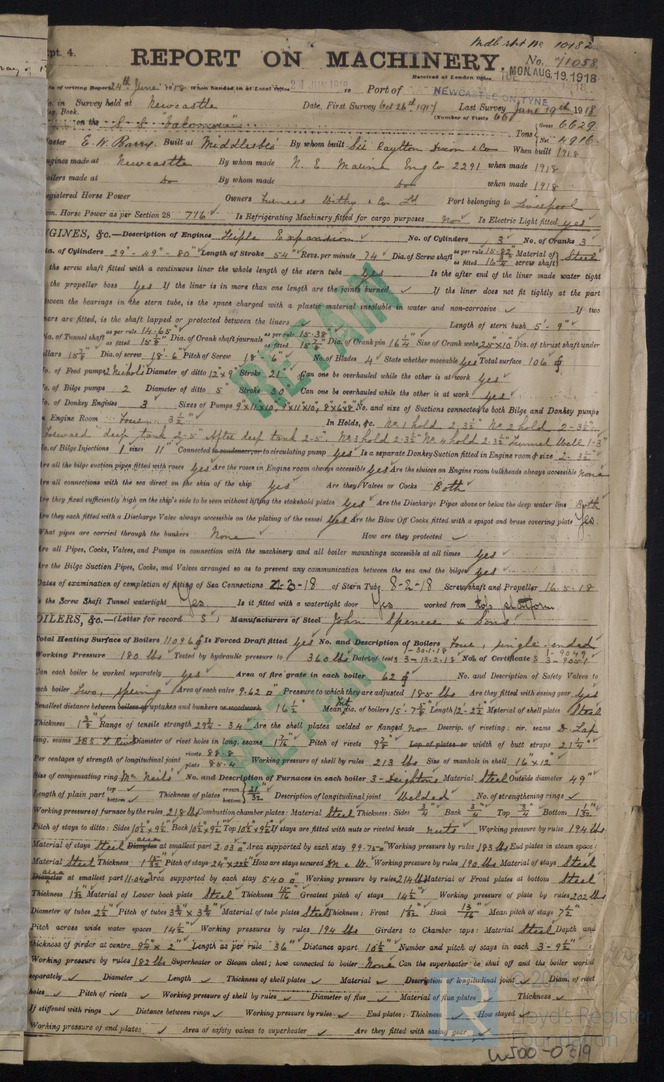 Mdbro' Rpt No 10182
pt. 4.
REPORT ON MACHINERY.
No. 71058
Received at London Office
MON. AUG. 19. 1918
of writing Report 24th June 1918 When handed in at Local Office 24 JUN 1918 Port of NEWCASTLE ON TYNE
in Survey held at Newcastle Date, First Survey Oct 26th 1917 Last Survey June 19th 1918
(Number of Visits 66)
on the S.S.
Tons Gross 6629
Net 4916
E. W. Barry. Built at Middlesbro' By whom built Sir Raylton Dixon & Co When built 1918
ngines made at Newcastle By whom made N. E. Marine Eng Co 2291 when made 1918
oilers made at Do By whom made Do when made 1918
egistered Horse Power Owners Furness Withy & Co Ld Port belonging to Liverpool
om. Horse Power as per Section 28 776 Is Refrigerating Machinery fitted for cargo purposes No Is Electric Light fitted yes
NGINES, &c.—Description of Engines Triple Expansion No. of Cylinders 3 No. of Cranks 3
ia. of Cylinders 29" - 49" - 80" Length of Stroke 54" Revs. per minute 74 Dia. of Screw shaft as per rule 15.82 as fitted 16¾ Material of screw shaft Steel
the screw shaft fitted with a continuous liner the whole length of the stern tube Yes Is the after end of the liner made water tight
the propeller boss Yes If the liner is in more than one length are the joints burned If the liner does not fit tightly at the part
tween the bearings in the stern tube, is the space charged with a plastic material insoluble in water and non-corrosive If two
ners are fitted, is the shaft lapped or protected between the liners Length of stern bush 5'-9"
ia. of Tunnel shaft as per rule 14.65" as fitted 15⅛" Dia. of Crank shaft journals as per rule 15.38" as fitted 15⅞" Dia. of Crank pin 16¼" Size of Crank webs 25x10 Dia. of thrust shaft under
ollars 15⅞ Dia. of screw 18-6 Pitch of Screw 18-6 No. of Blades 4 State whether moveable yes Total surface 106
o. of Feed pumps 2 Diameter of ditto 12"x9" Stroke 21" Can one be overhauled while the other is at work yes
o. of Bilge pumps 2 Diameter of ditto 5" Stroke 30" Can one be overhauled while the other is at work yes
o. of Donkey Engines 3 Sizes of Pumps 9"x11x10, 9"x11x10", 8x6x8" No. and size of Suctions connected to both Bilge and Donkey pumps
n Engine Room Four 3½" In Holds, &c. No 1 hold 2-3½" No 2 hold 2-3½"
Forward deep tank 2-5" After deep tank 2-5". No 3 hold 2-3½" No 4 hold 2-3½" Tunnel Well 1-3"
o. of Bilge Injections 1 sizes 11" Connected to condenser, or to circulating pump yes Is a separate Donkey Suction fitted in Engine room & size 2-3½"
re all the bilge suction pipes fitted with roses yes Are the roses in Engine room always accessible yes Are the sluices on Engine room bulkheads always accessible None
re all connections with the sea direct on the skin of the ship yes Are they Valves or Cocks Both
re they fixed sufficiently high on the ship's side to be seen without lifting the stokehold plates yes Are the Discharge Pipes above or below the deep water line Both
re they each fitted with a Discharge Valve always accessible on the plating of the vessel yes Are the Blow Off Cocks fitted with a spigot and brass covering plate Yes
What pipes are carried through the bunkers None How are they protected
re all Pipes, Cocks, Valves, and Pumps in connection with the machinery and all boiler mountings accessible at all times yes
re the Bilge Suction Pipes, Cocks, and Valves arranged so as to prevent any communication between the sea and the bilges yes
ates of examination of completion of fitting of Sea Connections 2-3-18 of Stern Tube 8-2-18 Screw shaft and Propeller 16.5.18
s the Screw Shaft Tunnel watertight Yes Is it fitted with a watertight door Yes worked from top platform
OILERS, &c.—(Letter for record S) Manufacturers of Steel John Spencer & Sons
otal Heating Surface of Boilers 11096 Is Forced Draft fitted yes No. and Description of Boilers Four, single-ended
Working Pressure 180 lbs Tested by hydraulic pressure to 360 lbs Date of test 1-30-1-18 3-13-2-18 No. of Certificate
an each boiler be worked separately yes Area of fire grate in each boiler 62 No. and Description of Safety Valves to
each boiler Two, spring Area of each valve 9.62 Pressure to which they are adjusted 185 lbs Are they fitted with easing gear yes
mallest distance between boilers or uptakes and bunkers or woodwork 16½" Mean dia. of boilers 15-7⅞ Length 12-2½ Material of shell plates Steel
Thickness Range of tensile strength 29½-34 Are the shell plates welded or flanged no Descrip. of riveting: cir. seams D Lap
long. seams Diameter of rivet holes in long. seams 1 7/16" Pitch of rivets 9⅞" Lap of plates or width of butt straps 21¼"
Per centages of strength of longitudinal joint rivets 88.8 plate 85.4 Working pressure of shell by rules 213 lbs Size of manhole in shell 16"x12"
ize of compensating ring McNeil's No. and Description of Furnaces in each boiler 3-Deightons Material Steel Outside diameter 49"
Length of plain part top bottom Thickness of plates crown bottom 21/32 Description of longitudinal joint Welded No. of strengthening rings
Working pressure of furnace by the rules 218 lbs Combustion chamber plates: Material Steel Thickness: Sides ¾" Back ¾" Top ¾" Bottom
Pitch of stays to ditto: Sides 10½x9½ Back 10½x9½ Top 10½x9½ If stays are fitted with nuts or riveted heads nuts Working pressure by rules 194 lbs
Material of stays Steel Diameter at smallest part 2.03 Area supported by each stay 99.75 Working pressure by rules 183 lbs End plates in steam space:
Material Steel Thickness Pitch of stays 24"x22½ How are stays secured Working pressure by rules 190 lbs Material of stays Steel
Diameter at smallest part 11.04 Area supported by each stay 540 Working pressure by rules 214 lbs Material of Front plates at bottom Steel
Thickness Material of Lower back plate Steel Thickness Greatest pitch of stays 14½" Working pressure of plate by rules 202 lbs
Diameter of tubes 2½" Pitch of tubes 3¾ x 3¾" Material of tube plates Steel Thickness: Front Back 13/16" Mean pitch of stays 7½"
Pitch across wide water spaces 14½" Working pressures by rules 194 lbs Girders to Chamber tops: Material Steel Depth and
thickness of girder at centre Length as per rule 36" Distance apart 10½" Number and pitch of stays in each 3-9½"
Working pressure by rules 182 lbs Superheater or Steam chest; how connected to boiler None Can the superheater be shut off and the boiler worked
separately Diameter Length Thickness of shell plates Material Description of longitudinal joint Diam. of rivet
holes Pitch of rivets Working pressure of shell by rules Diameter of flue Material of flue plates Thickness
If stiffened with rings Distance between rings Working pressure by rules End plates: Thickness How stayed
Working pressure of end plates Area of safety valves to superheater Are they fitted with easing gear
RETAIN
RETAIN
Lloyd's Register
Foundation
W500-0319